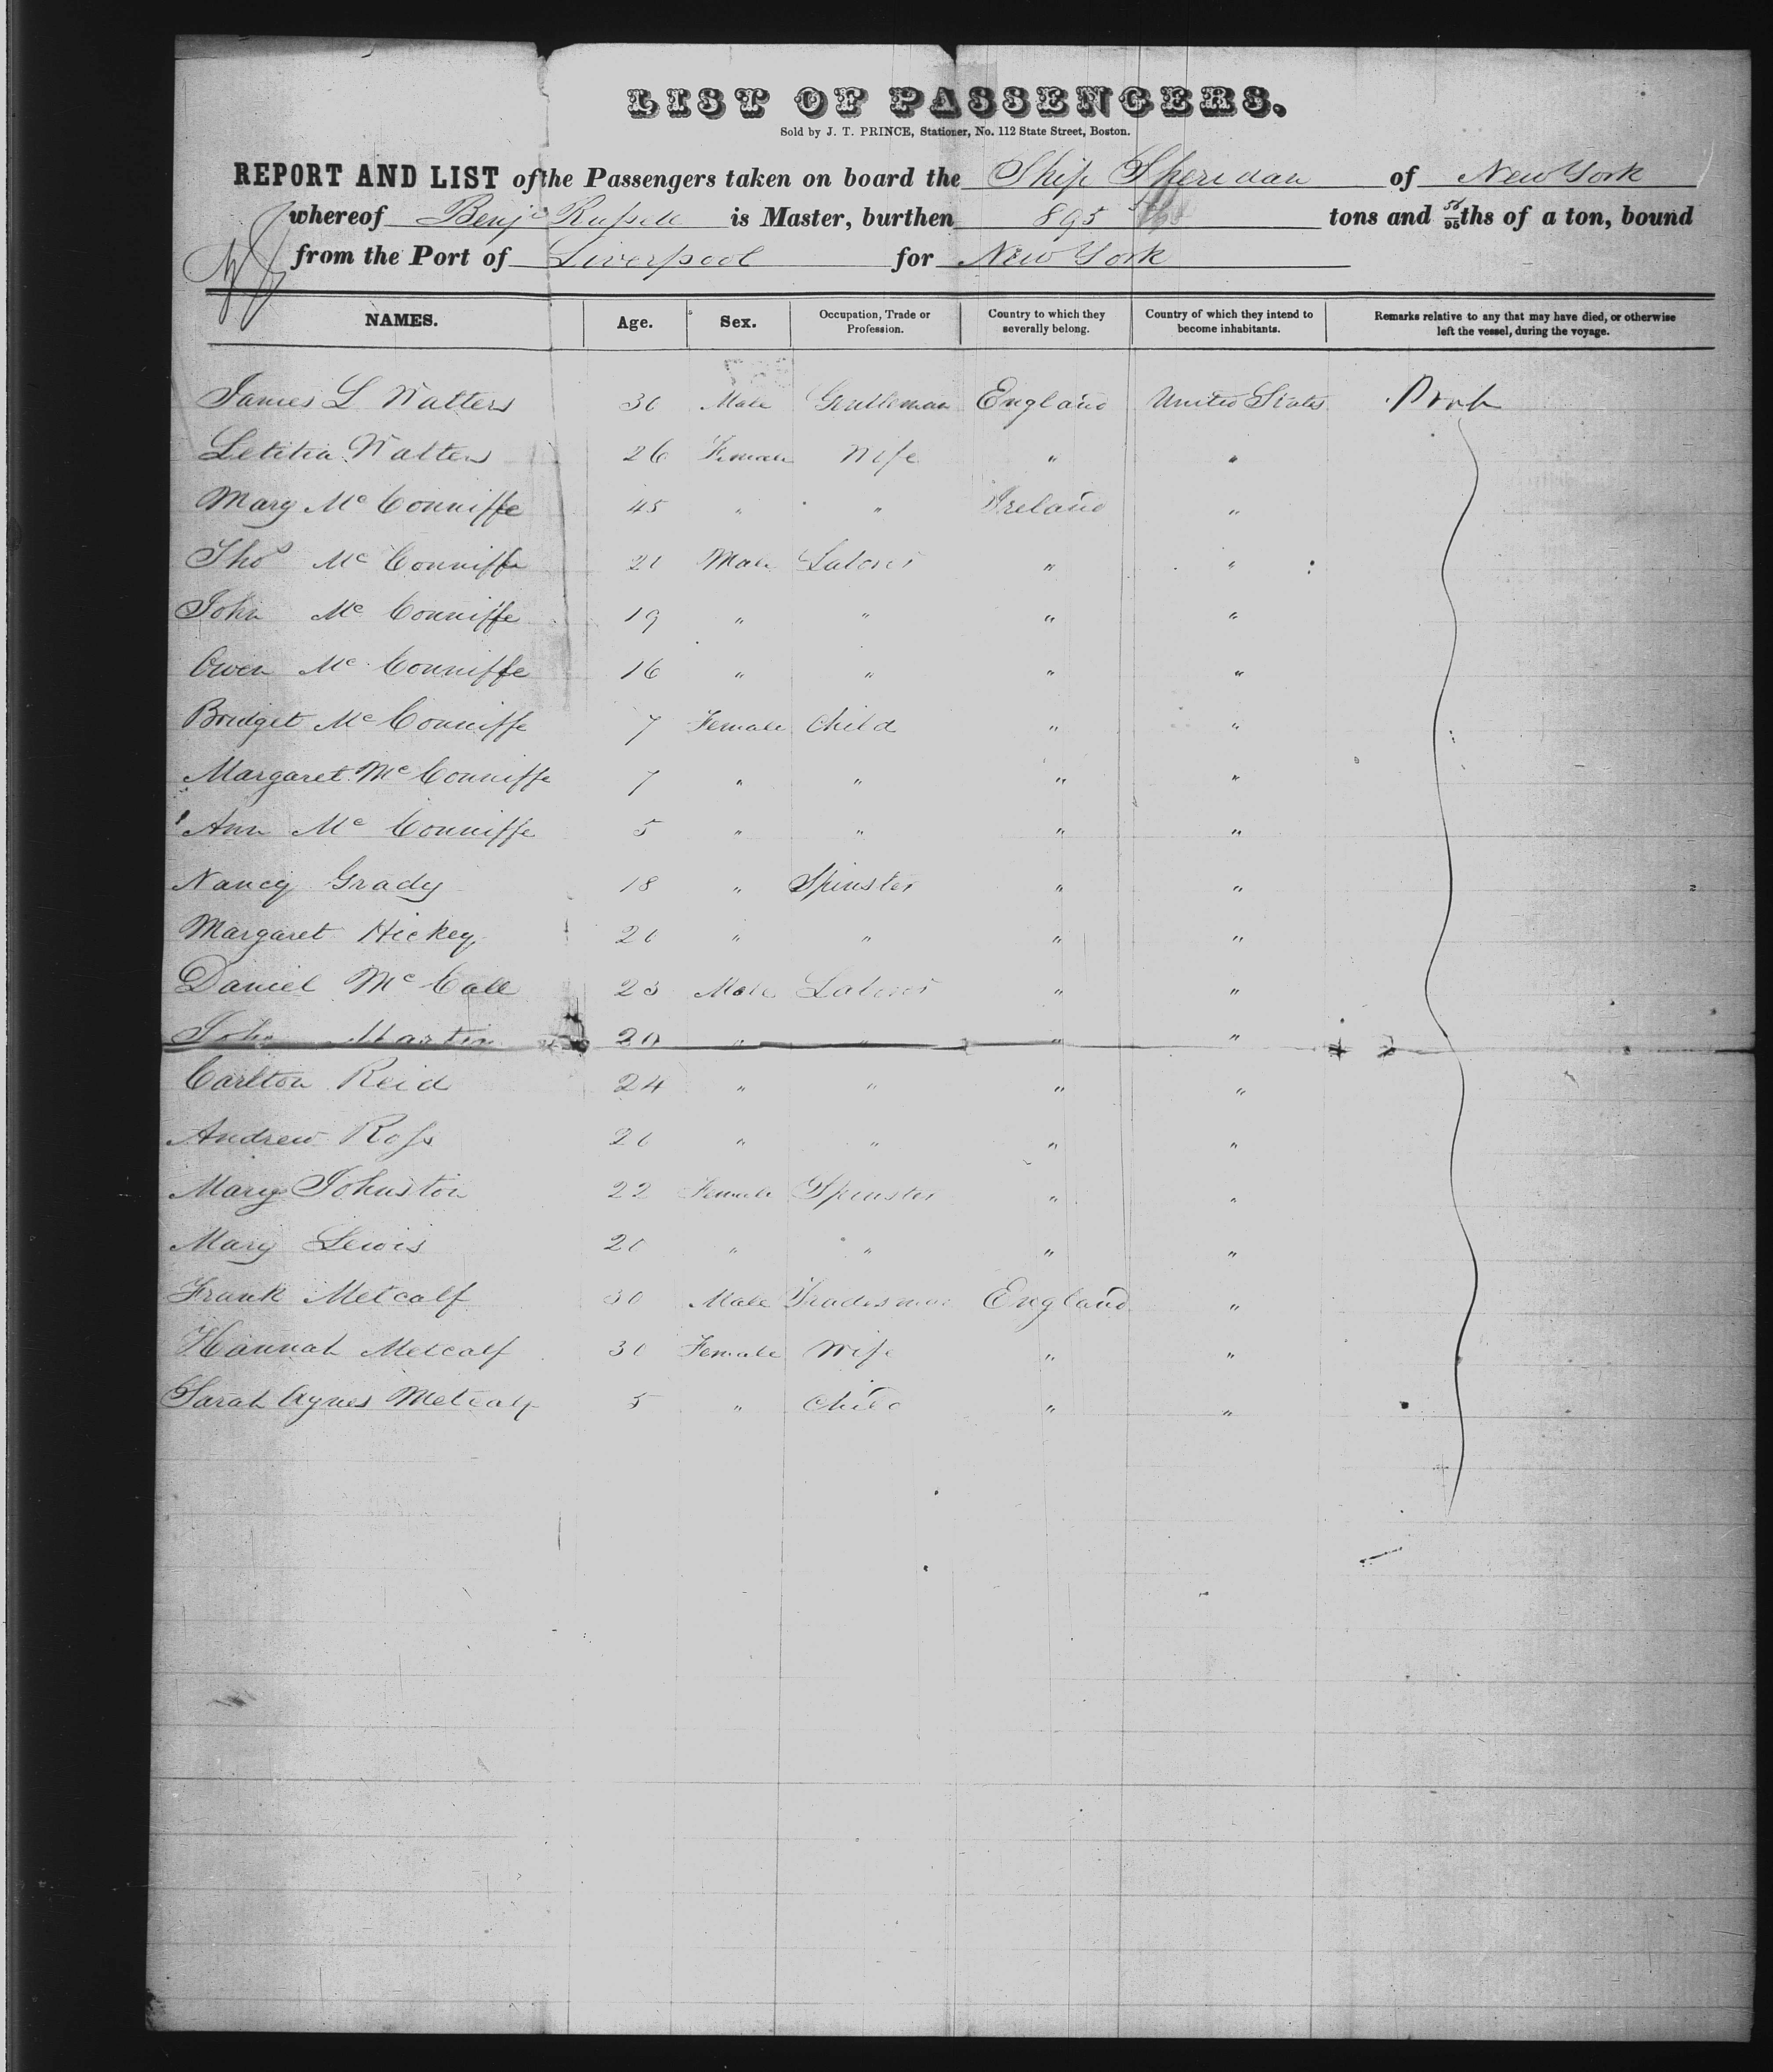 LIST OF PASSENGERS.
Sold by J. T. PRINCE, Stationer, No. 112 State Street, Boston.
REPORT AND LIST of the Passengers taken on board the Ship Sheridan of New York
whereof Benj Russell is Master, burthen 895 tons and 56/95ths of a ton, bound
from the Port of Liverpool for New York
NAMES. Age. Sex. Occupation, Trade or Profession. Country to which they severally belong. Country of which they intend to become inhabitants. Remarks relative to any that may have died, or otherwise left the vessel, during the voyage.
James L Walters 30 Male Gentleman England United States
Letitia Walters 26 Female Wife " "
Mary Mc Conniffe 45 " " Ireland "
Thos Mc Conniffe 20 Male Laborer " "
John Mc Conniffe 19 " " " "
Owen Mc Conniffe 16 " " " "
Bridget Mc Conniffe 7 Female Child " "
Margaret Mc Conniffe 7 " " " "
Ann Mc Conniffe 5 " " " "
Nancy Grady 18 " Spinster " "
Margaret Hickey 20 " " " "
Daniel Mc Call 23 Male Laborer " "
John Martin 20 " " " "
Carlton Reid 24 " " " "
Andrew Ross 20 " " " "
Mary Johnston 22 Female Spinster " "
Mary Lewis 20 " " " "
Frank Metcalf 30 Male Tradesman England "
Hannah Metcalf 30 Female Wife " "
Sarah Agnes Metcalf 5 " Child " "